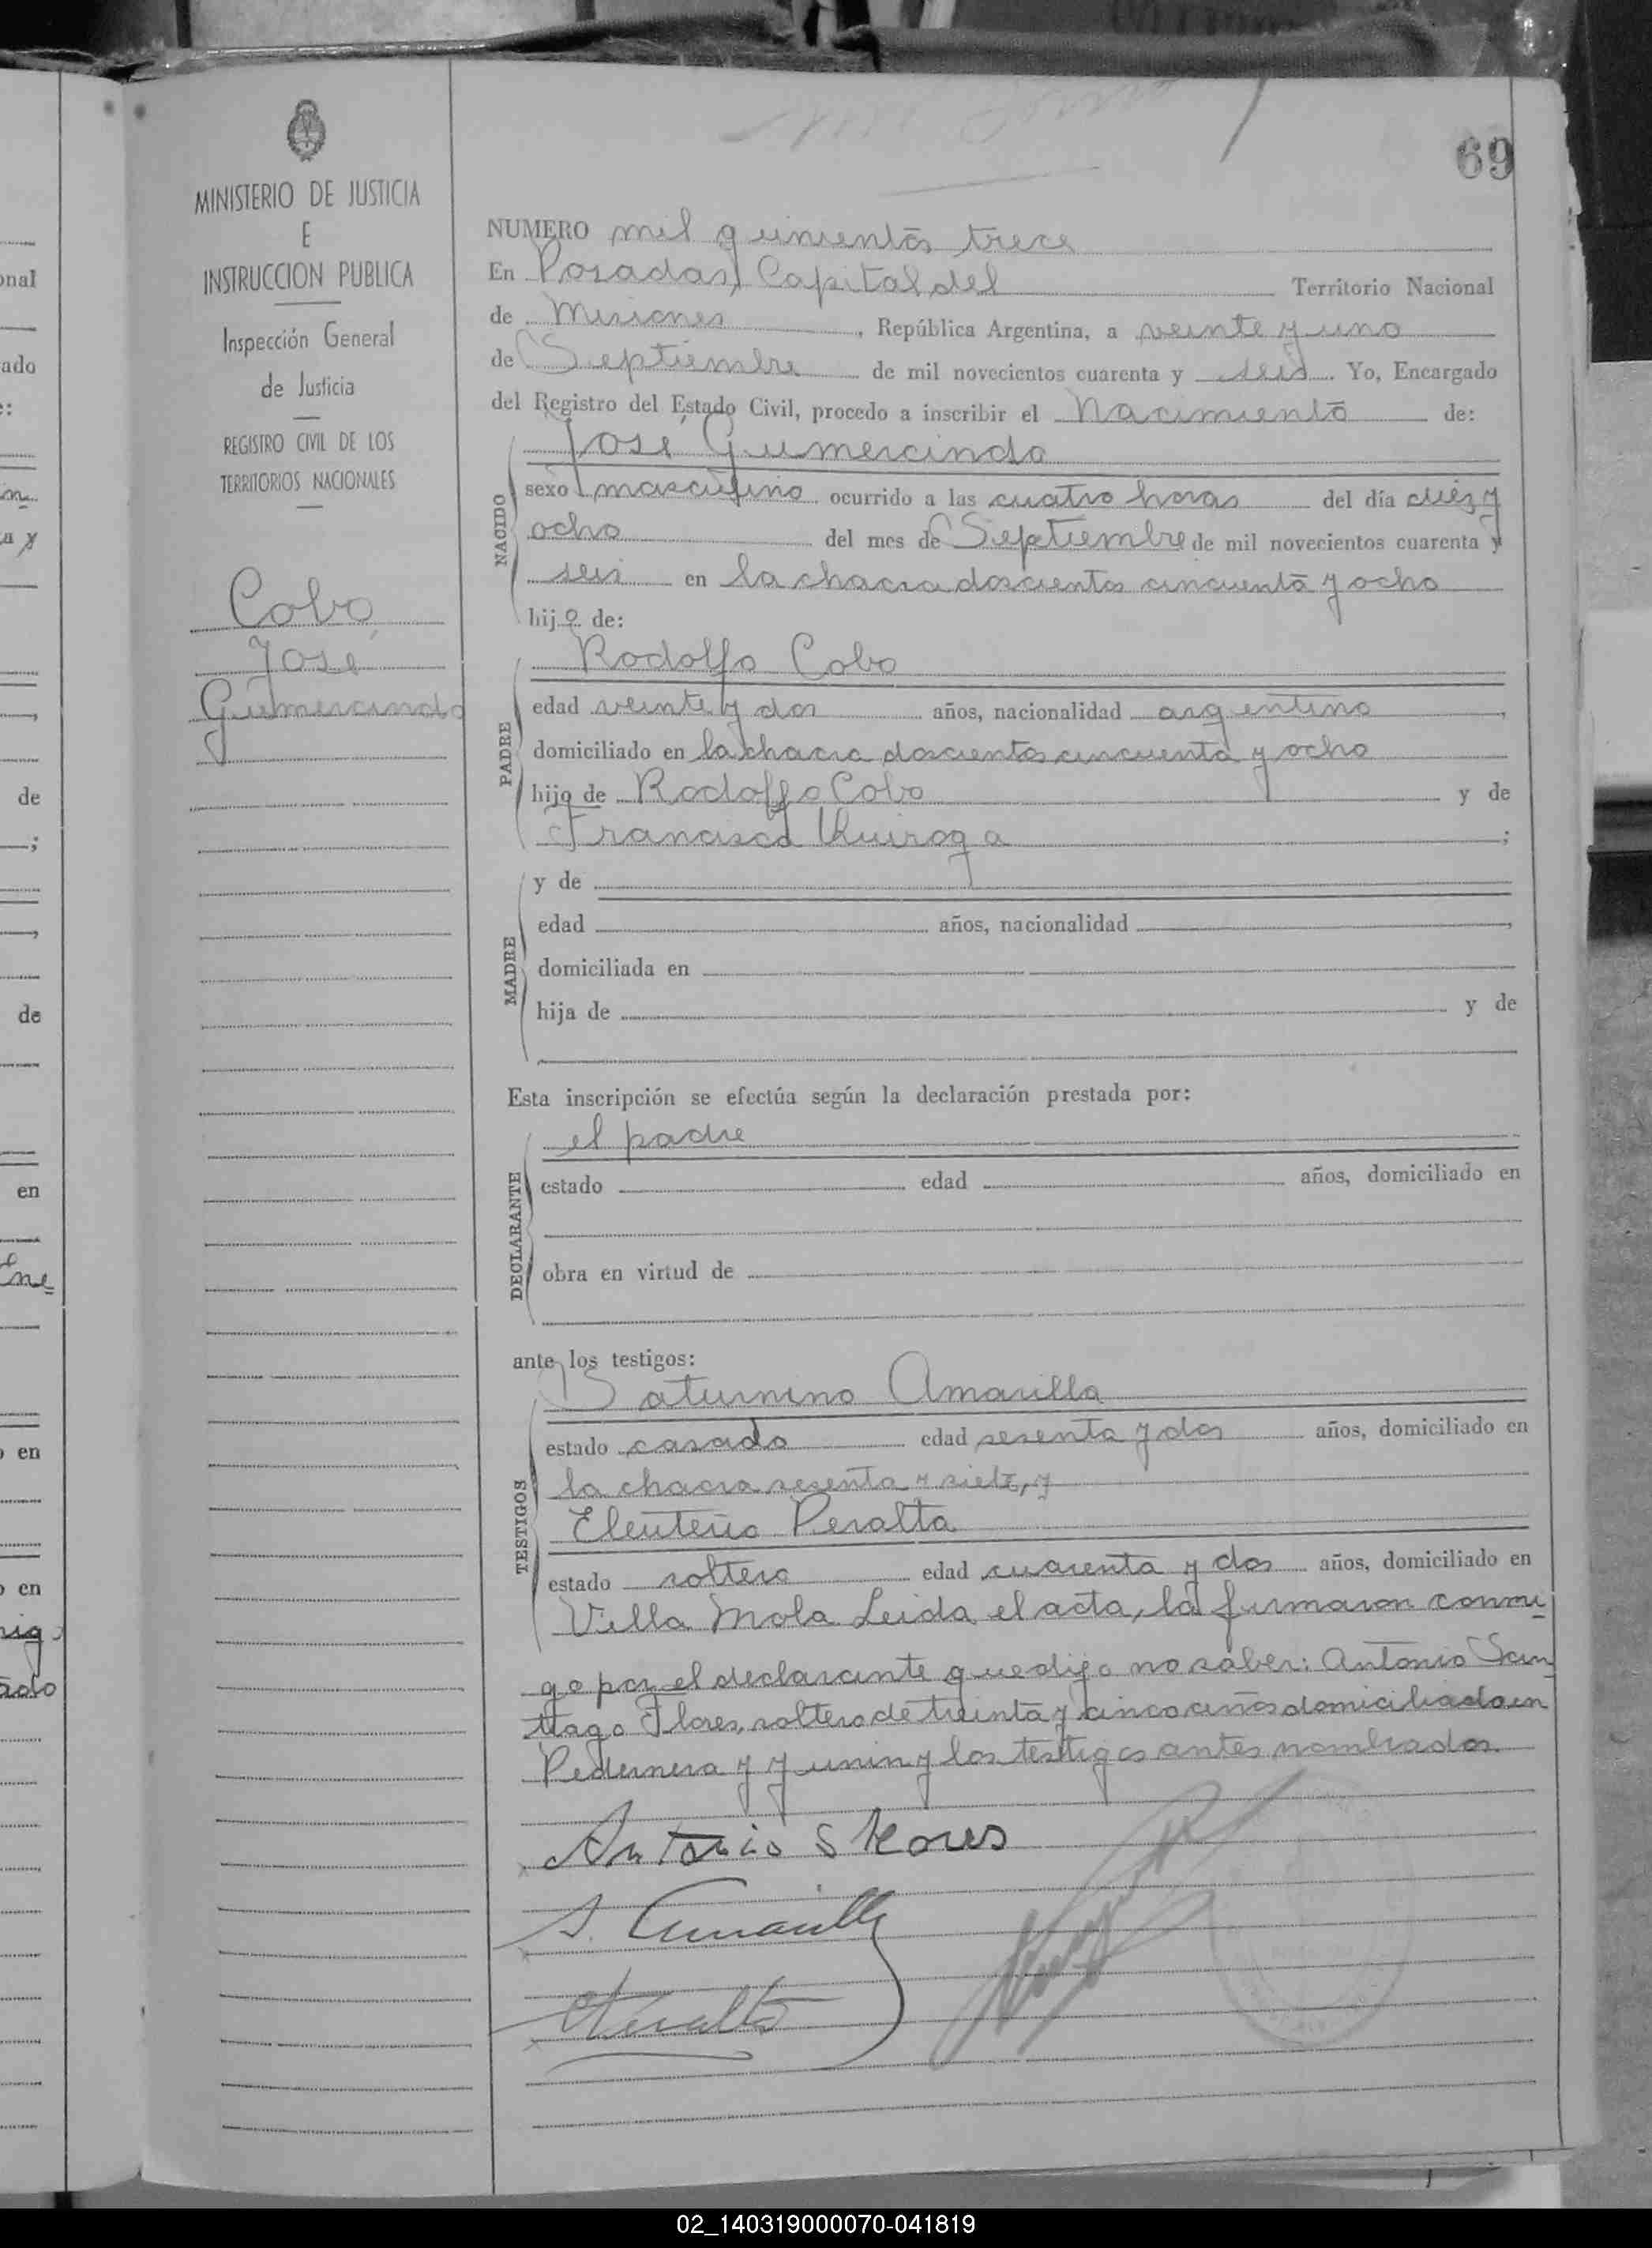 69
MINISTERIO DE JUSTICIA
E
INSTRUCCION PUBLICA
Inspección General
de Justicia
REGISTRO CIVIL DE LOS
TERRITORIOS NACIONALES
Cobo
José
Gumercindo
NUMERO mil quinientos trece
En Posadas, Capital del Territorio Nacional
de Misiones, República Argentina, a veinte y uno
de Septiembre de mil novecientos cuarenta y seis. Yo, Encargado
del Registro del Estado Civil, procedo a inscribir el Nacimiento de:
José Gumercindo
NACIDO
sexo masculino ocurrido a las cuatro horas del día diez y
ocho del mes de Septiembre de mil novecientos cuarenta y
seis en la chacra doscientos cincuenta y ocho
hijo de:
Rodolfo Cobo
PADRE
edad veinte y dos años, nacionalidad argentino,
domiciliado en la chacra doscientos cincuenta y ocho
hijo de Rodolfo Cobo y de
Francisca Quiroga;
MADRE
y de
edad años, nacionalidad,
domiciliada en
hija de y de
Esta inscripción se efectúa según la declaración prestada por:
el padre
DECLARANTE
estado edad años, domiciliado en
obra en virtud de
ante los testigos:
Saturnino Amarilla
TESTIGOS
estado casado edad sesenta y dos años, domiciliado en
la chacra sesenta y siete, y
Eleuterio Peralta
estado soltero edad cuarenta y dos años, domiciliado en
Villa Mola Leida el acta, la firmaron conmi
go por el declarante que dijo no saber: Antonio San
tiago Flores, soltero de treinta y cinco años domiciliado en
Pedernera y Junin y los testigos antes nombrados.
Antonio S Flores
S. Amarilla
E Peralta
onal
ado
de
de
en
en
en
02_140319000070-041819